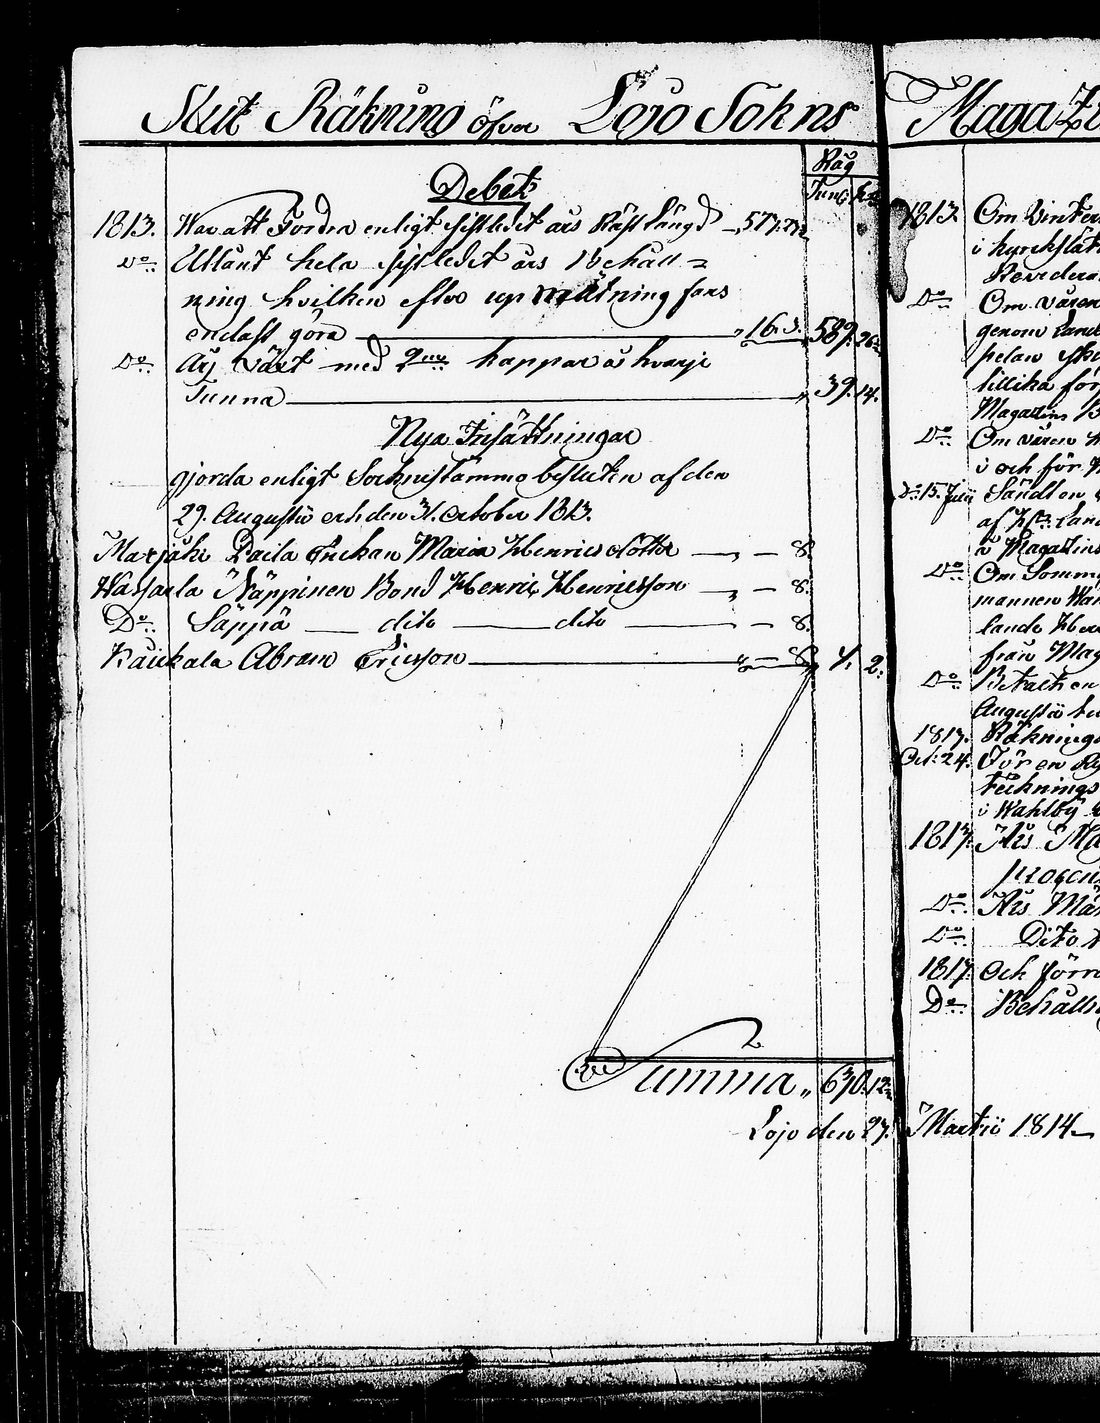 Slut Räkning öfver Lojo Sokns
Råg
Debet
Tun: k:
1813. War att Fordra enligt sistledit års Rästlängd 573.
Do Utlånt hela sistledit års Behåll=
ning hvilken efter upmätning fans
endast göra 16. 589. 26
Do Årj växt med 2ne kappar å hvarje
Tunna 39. 14.
Nya Insättningar
gjorda enligt Socknestämmo besluten af den
29. Augustii och den 31. October 1813.
Marjäki Paila Enckan Maria Henricsdotter — 8.
Näppinen Bond Henric Henricsson — 8.
Do Säppä dito dito — 8.
Kaukala Abram Ericsson — 8. 4. 2.
Summa 630. 12
Lojo den 27.
Magazi
1813. Om Vinter
i kyrkslät
Revidera
Do Om våren
genom Land
tillika för
Magazins
Do Om våren
i och för
Do 15. Julii Sändt en
af
å Magazins
Do Om Somm
mannen
lande
från Mag
Do Betalt en
Augustii
1813. Räkning
Oct: 24. För en
tecknings
i Wahlby
1813. Års
Do Års
Do Dito
1813. Och förr
Do Behålln
Martii 1814